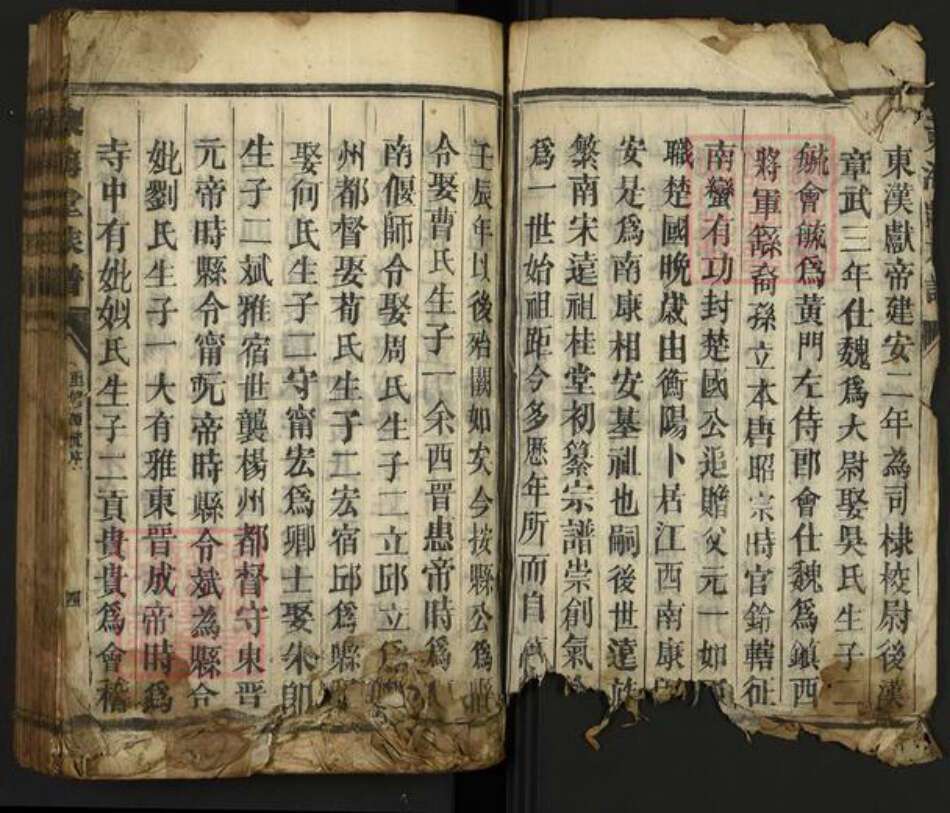 東漢獻帝建安二年為司棣校尉後漢
章武三年仕魏為大尉娶吳氏生子二
毓會毓為黃門左侍郎會仕魏為鎮西
將軍繇裔孫立本唐昭宗時官鈐轄征
南蠻有功封楚國公追贈父元一如
職楚國晚歲由衡陽卜居江西南康
安是為南康相安基祖也嗣後世遠
繁南宋遠祖桂堂初纂宗譜崇創氣
為一世始祖距今多歷年所而自
壬辰年以後殆闕如矣今按縣公為
令娶曹氏生子一余西晉愍帝時為
南偃師令娶周氏生子二立邱立
州都督娶荀氏生子二宏宿邱為縣
娶何氏生子二守甯宏為卿士娶朱
生子二斌雅宿世襲楊州都督守東晉
元帝時縣令甯元帝時縣令斌為縣令
妣劉氏生子一大有雅東晉成帝時為
寺中有妣姒氏生子二貢貴貴為會稽
四